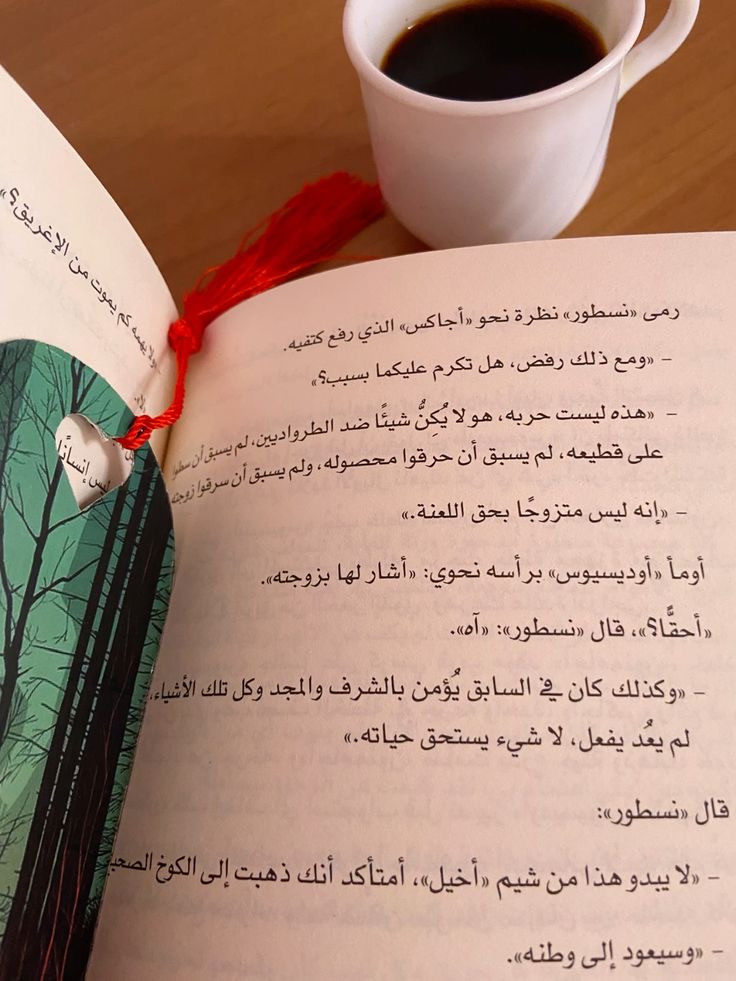 رمى «نسطور» نظرة نحو «أجاكس» الذي رفع كتفيه.
– «ومع ذلك رفض، هل تكرم عليكما بسبب؟»
– «هذه ليست حربه، هو لا يُكِنُّ شيئًا ضد الطرواديين، لم يسبق أن سطوا
على قطيعه، لم يسبق أن حرقوا محصوله، ولم يسبق أن سرقوا زوجته
– «إنه ليس متزوجًا بحق اللعنة.»
أومأ «أوديسيوس» برأسه نحوي: «أشار لها بزوجته».
«أحقًّا؟»، قال «نسطور»: «آه».
– «وكذلك كان في السابق يُؤمن بالشرف والمجد وكل تلك الأشياء،
لم يعُد يفعل، لا شيء يستحق حياته.»
قال «نسطور»:
– «لا يبدو هذا من شيم «أخيل»، أمتأكد أنك ذهبت إلى الكوخ
– «وسيعود إلى وطنه».
ولا يهمه كم يموت من الإغريق؟»
ليس إنسانًا